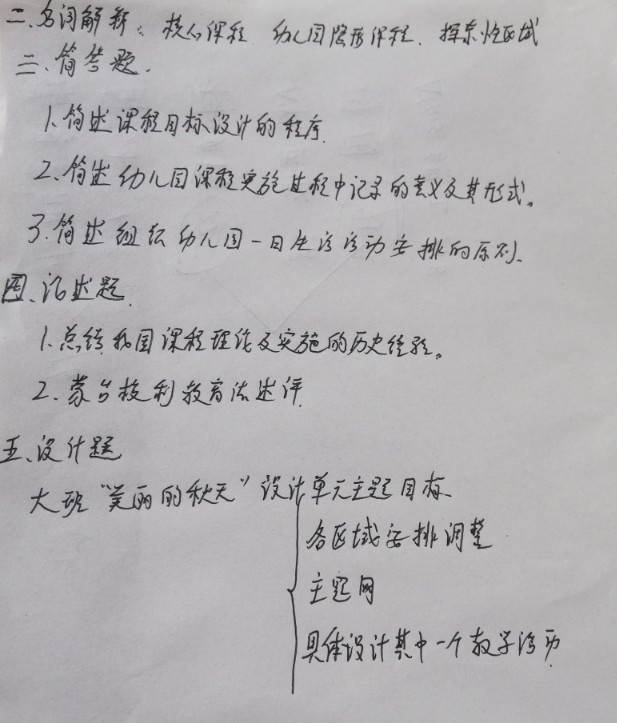 二、名词解释：核心课程、幼儿园隐形课程、探索性区域
三、简答题.
1.简述课程目标设计的程序.
2、简述幼儿园课程实施过程中记录的意义及其形式。
3.简述组织幼儿园一日生活活动安排的原则.
四、论述题
1.总结我国课程理论及实施的历史经验。
2.蒙台梭利教育法述评
五、设计题
大班“美丽的秋天”设计单元主题目标.
各区域安排调整
主题网
具体设计其中一个教学活动